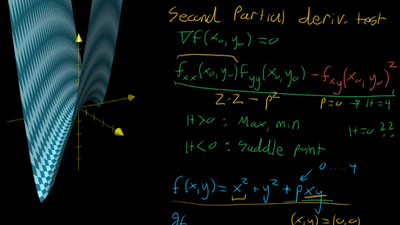 Second Partial deriv. test
∇f(x₀,y₀)=0
fₓₓ(x₀,y₀)fᵧᵧ(x₀,y₀) - fₓᵧ(x₀,y₀)²
2·2 - p²
p=0 → H=4
H>0 : Max, min
H=0 ??
H<0 : Saddle point
0 ..... 4
f(x,y) = x² + y² + pxy
(x,y) = (0,0)